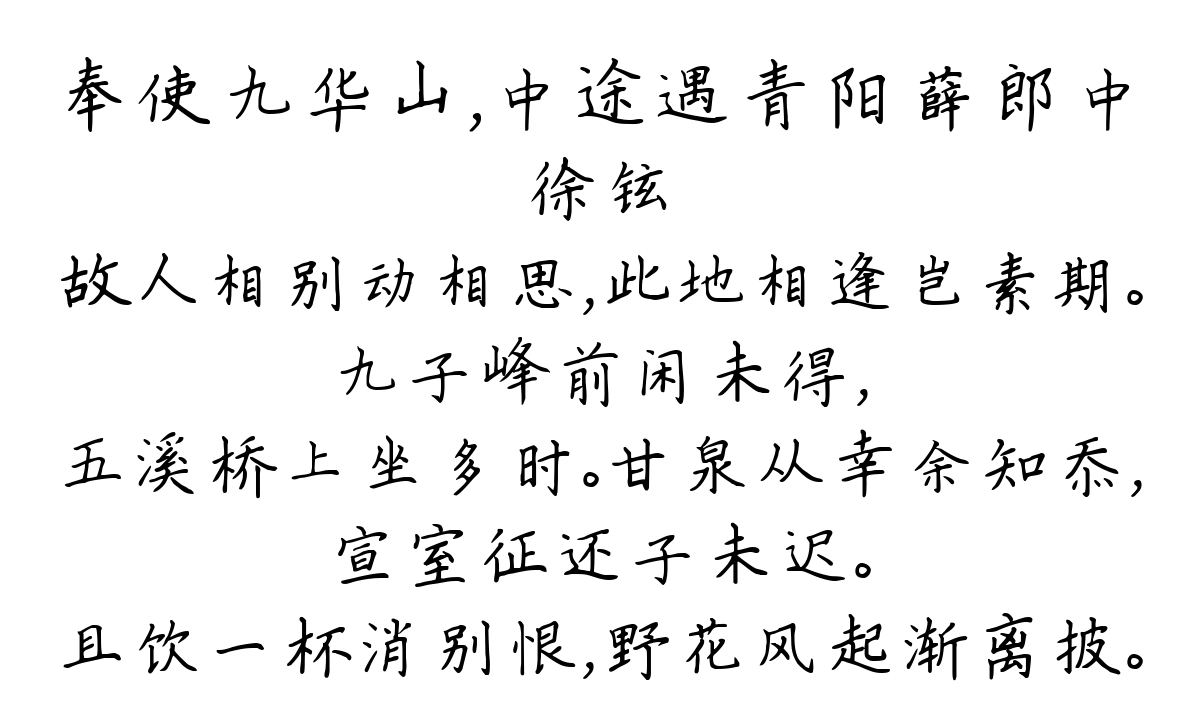 奉使九华山,中途遇青阳薛郎中
徐铉
故人相别动相思,此地相逢岂素期。
九子峰前闲未得,
五溪桥上坐多时。甘泉从幸余知忝,
宣室征还子未迟。
且饮一杯消别恨,野花风起渐离披。